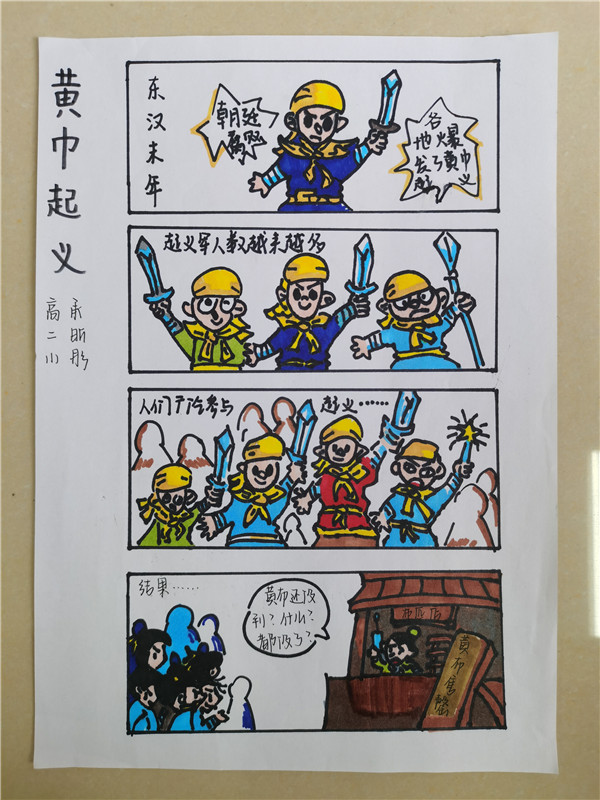 黄巾起义
高二小
承昕彤
东汉末年
朝廷
腐败
各
地爆
发了黄巾
起义
起义军人数越来越多
人们广泛参与
起义……
结果……
黄布还没
到？什么？
都没了？
布匹店
黄布售罄